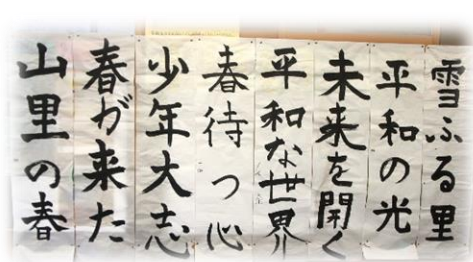 雪ふる里
平和の光
未来を開く
平和な世界
春待つ心
少年大志
春が来た
山里の春